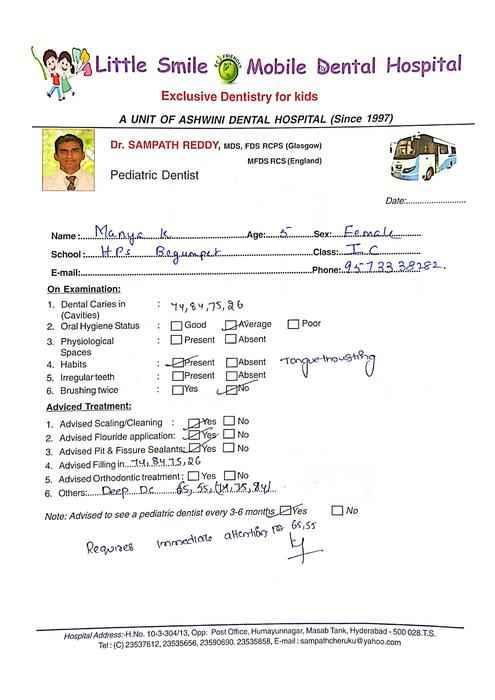 Little Smile ECO FRIENDLY Mobile Dental Hospital
Exclusive Dentistry for kids
A UNIT OF ASHWINI DENTAL HOSPITAL (Since 1997)
Dr. SAMPATH REDDY, MDS, FDS RCPS (Glasgow)
MFDS RCS (England)
Pediatric Dentist
Date:
Name: Manya K Age: 5 Sex: Female
School: HPS Begumpet Class: I C
E-mail: Phone: 9573338282.
On Examination:
1. Dental Caries in (Cavities) : 74,84,75,26
2. Oral Hygiene Status : Good Average Poor
3. Physiological Spaces : Present Absent
4. Habits : Present Absent Tongue thrusting
5. Irregular teeth : Present Absent
6. Brushing twice : Yes No
Adviced Treatment:
1. Advised Scaling/Cleaning : Yes No
2. Advised Flouride application: Yes No
3. Advised Pit & Fissure Sealants: Yes No
4. Advised Filling in 74,84,75,26
5. Advised Orthodontic treatment: Yes No
6. Others: Deep D.C 65, 55, (74, 75, 84)
Note: Advised to see a pediatric dentist every 3-6 months Yes No
Requires immediate attention for 65,55
Hospital Address:-H.No. 10-3-304/13, Opp: Post Office, Humayunnagar, Masab Tank, Hyderabad - 500 028.T.S.
Tel : (C) 23537612, 23535656, 23590690. 23535858, E-mail : sampathcheruku@yahoo.com